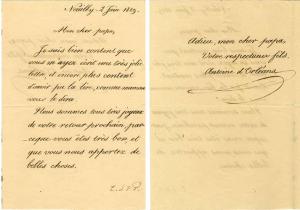 Neuilly - 2 Juin 1889.
Mon cher papa,
Je suis bien content que
vous m'ayez écrit une très jolie
lettre, et encore plus content
d'avoir pu la lire, comme maman
vous le dira.
Nous sommes tous très joyeux
de votre retour prochain, par-
ceque vous êtes très bon et
que vous nous apportez de
belles choses.
Adieu, mon cher papa,
Votre respectueux fils,
Antoine d'Orléans